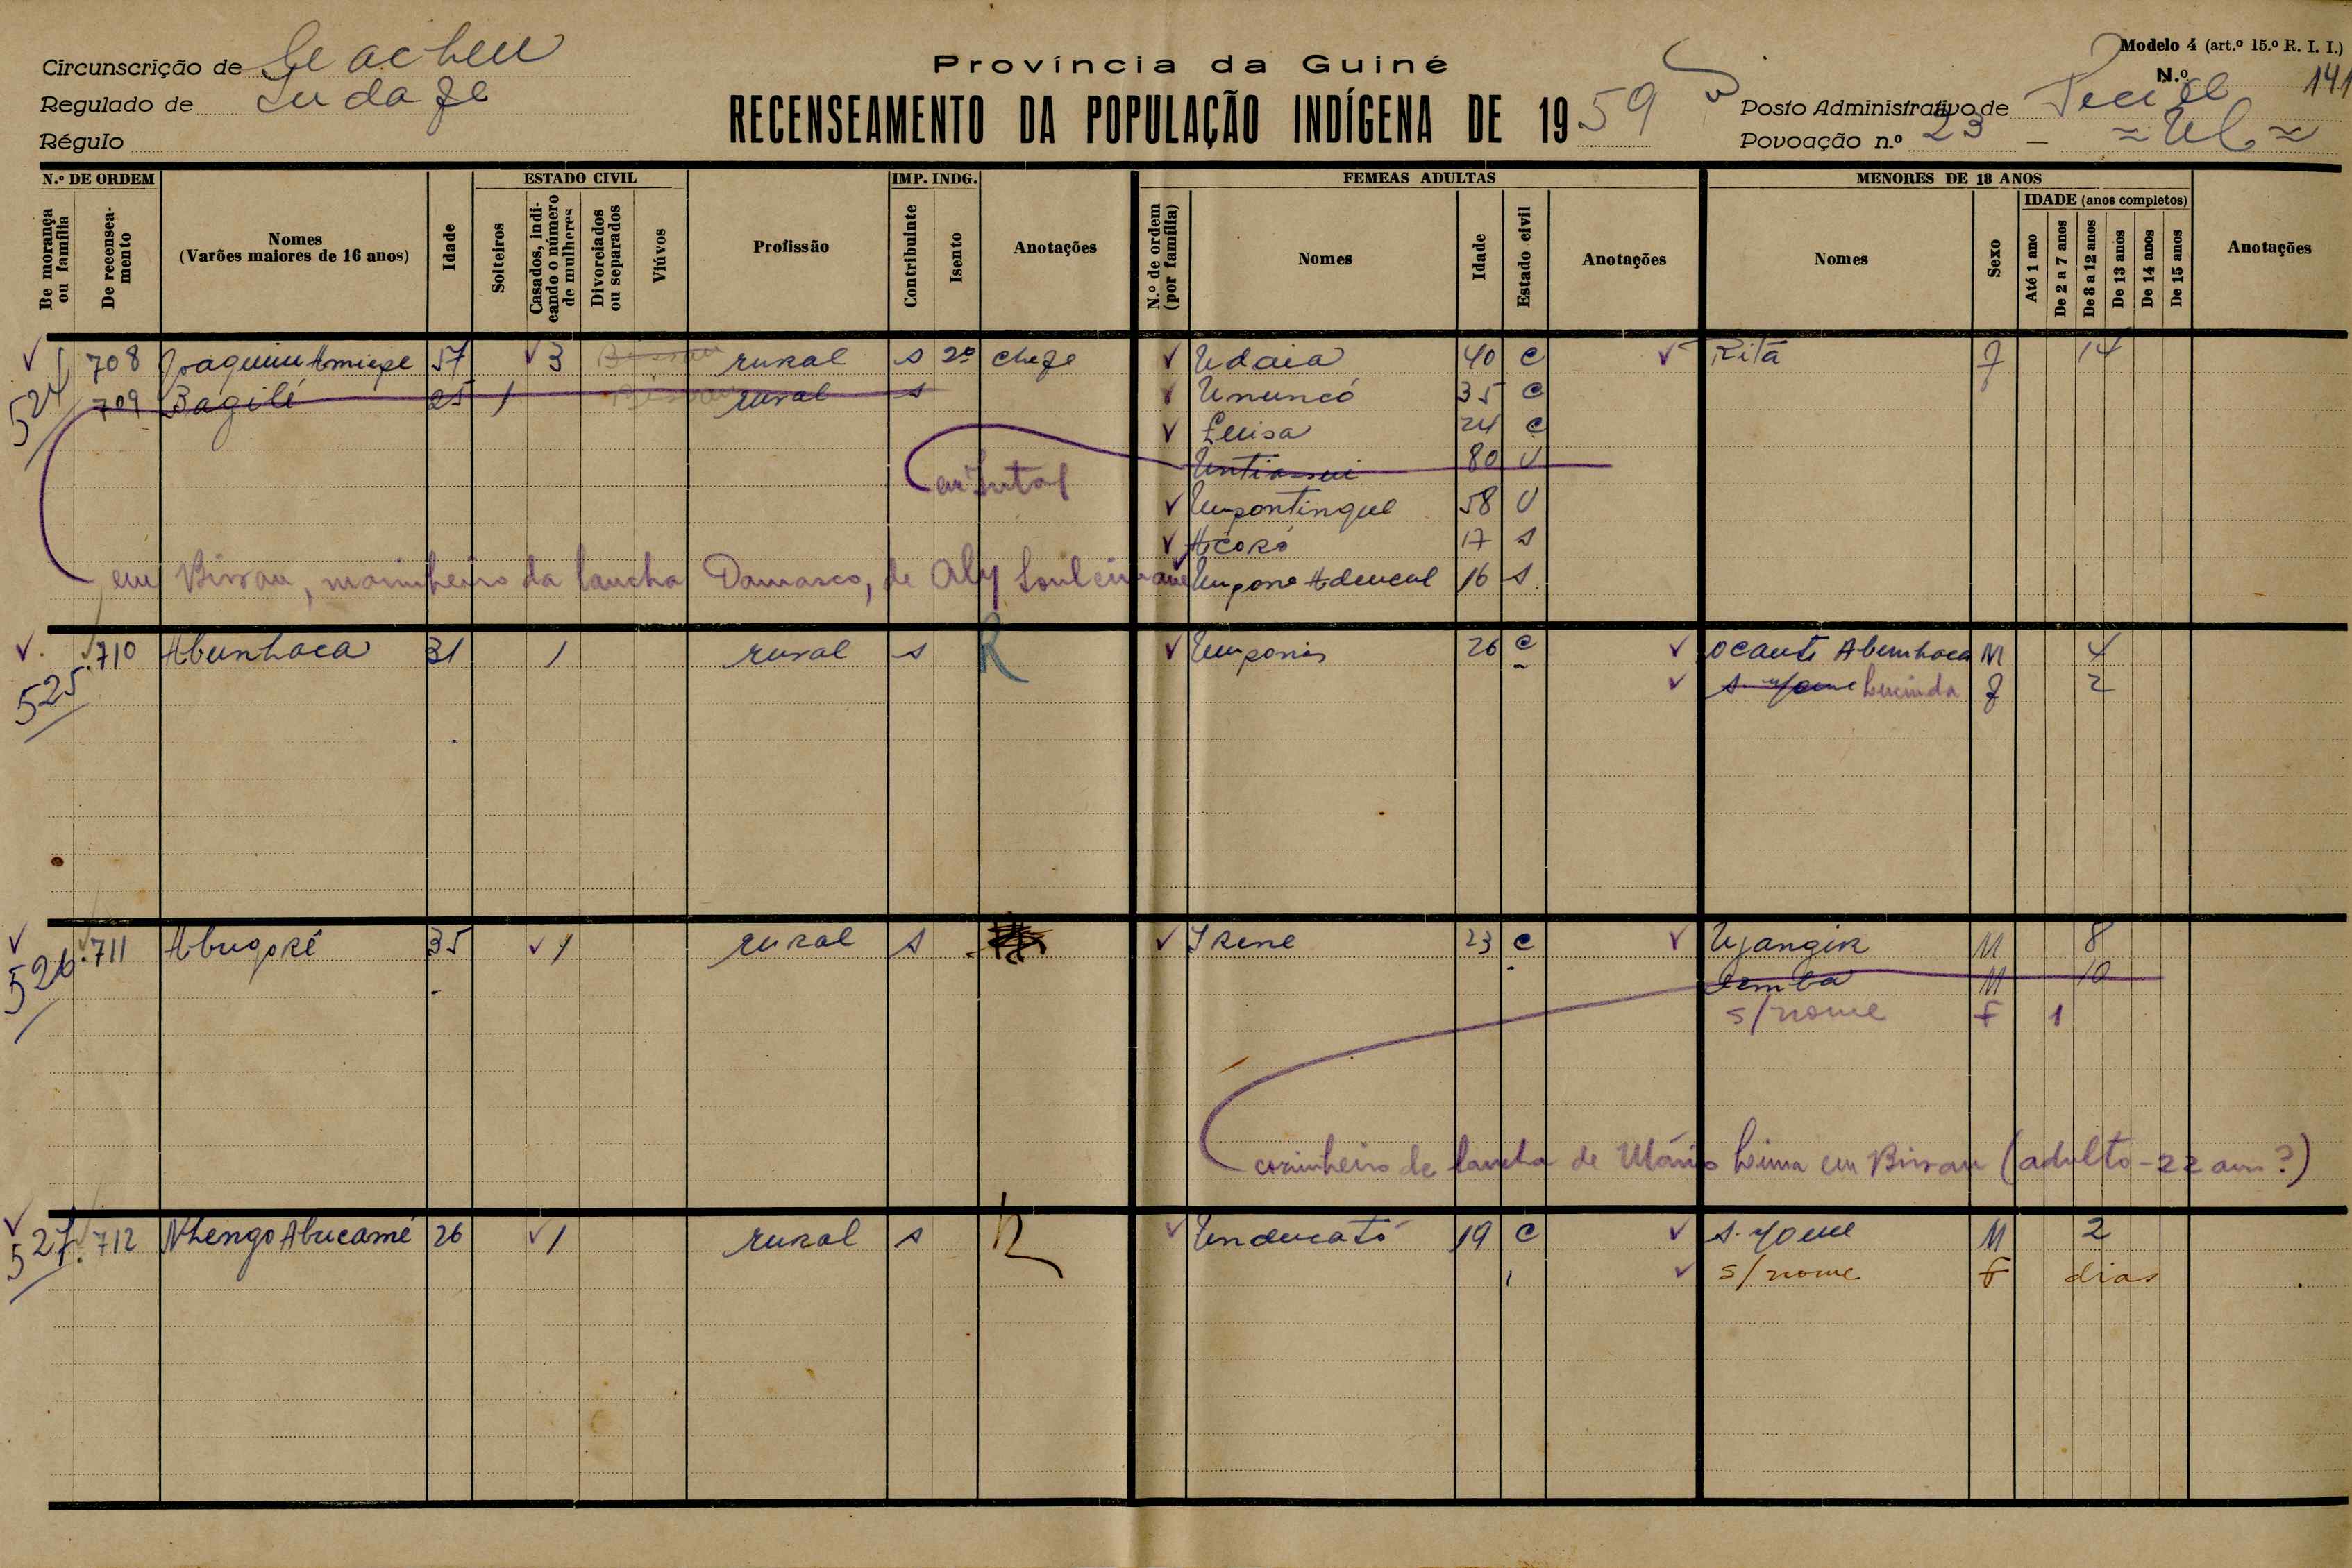 Circunscrição de Cacheu
Regulado de
Régulo
Província da Guiné
RECENSEAMENTO DA POPULAÇÃO INDÍGENA DE 1959
Modelo 4 (art.º 15.º R. I. I.)
N.º 141
Posto Administrativo de
Povoação n.º 23 —
N.º DE ORDEM
De morança ou família
De recenseamento
Nomes
(Varões maiores de 16 anos)
Idade
ESTADO CIVIL
Solteiros
Casados, indicando o número de mulheres
Divorciados ou separados
Viúvos
Profissão
IMP. INDG.
Contribuinte
Isento
Anotações
FEMEAS ADULTAS
N.º de ordem (por família)
Nomes
Idade
Estado civil
Anotações
MENORES DE 18 ANOS
Nomes
Sexo
IDADE (anos completos)
Até 1 ano
De 2 a 7 anos
De 8 a 12 anos
De 13 anos
De 14 anos
De 15 anos
Anotações
524 708 Joaquim 57 3 Bissau rural s 2º chefe Udaia 40 C Rita f 14
709 Bagilé 25 1 Bissau rural s Ununcó 35 C
Luisa 24 C
80 V
58 V
Acoró 17 s
em Bissau, marinheiro da lancha Damasco, de Aly Souleimane 16 s.
525 710 Abunhaca 31 1 rural s R 26 C Ocante Abunhaca M 4
s. nome Lucinda f 2
526 711 35 1 rural s Irene 23 C M 8
M 10
s/nome F 1
cozinheiro de lancha de Mário Lima em Bissau (adulto - 22 anos?)
527 712 Nhengo Abucamé 26 1 rural s R Unducató 19 C s. nome M 2
s/nome F dias